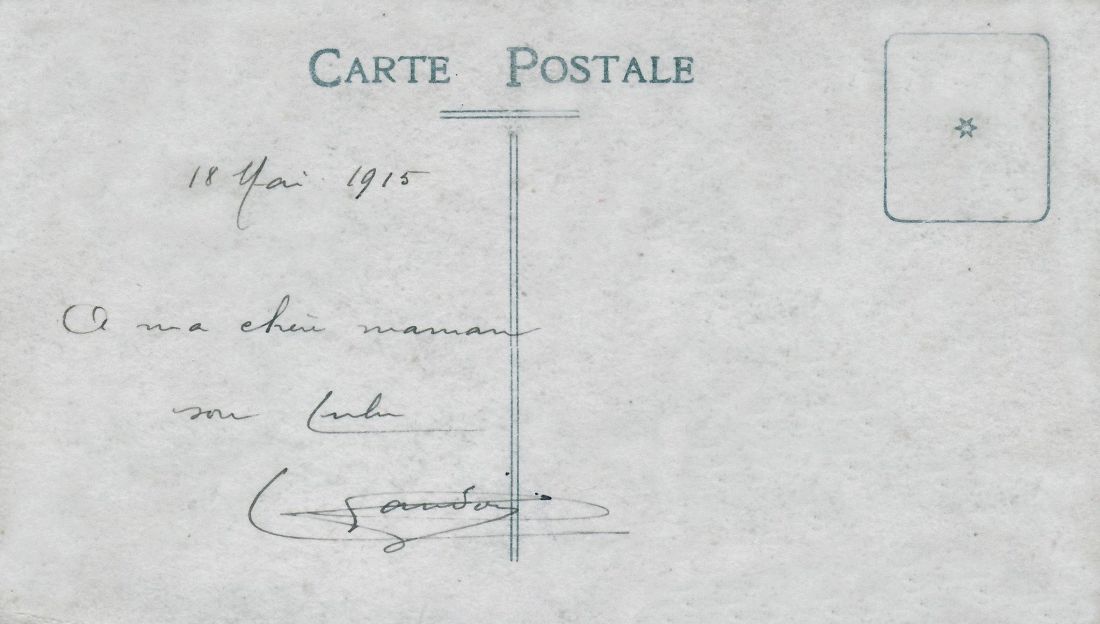 CARTE POSTALE
18 Mai 1915
A ma chère maman
son Lulu